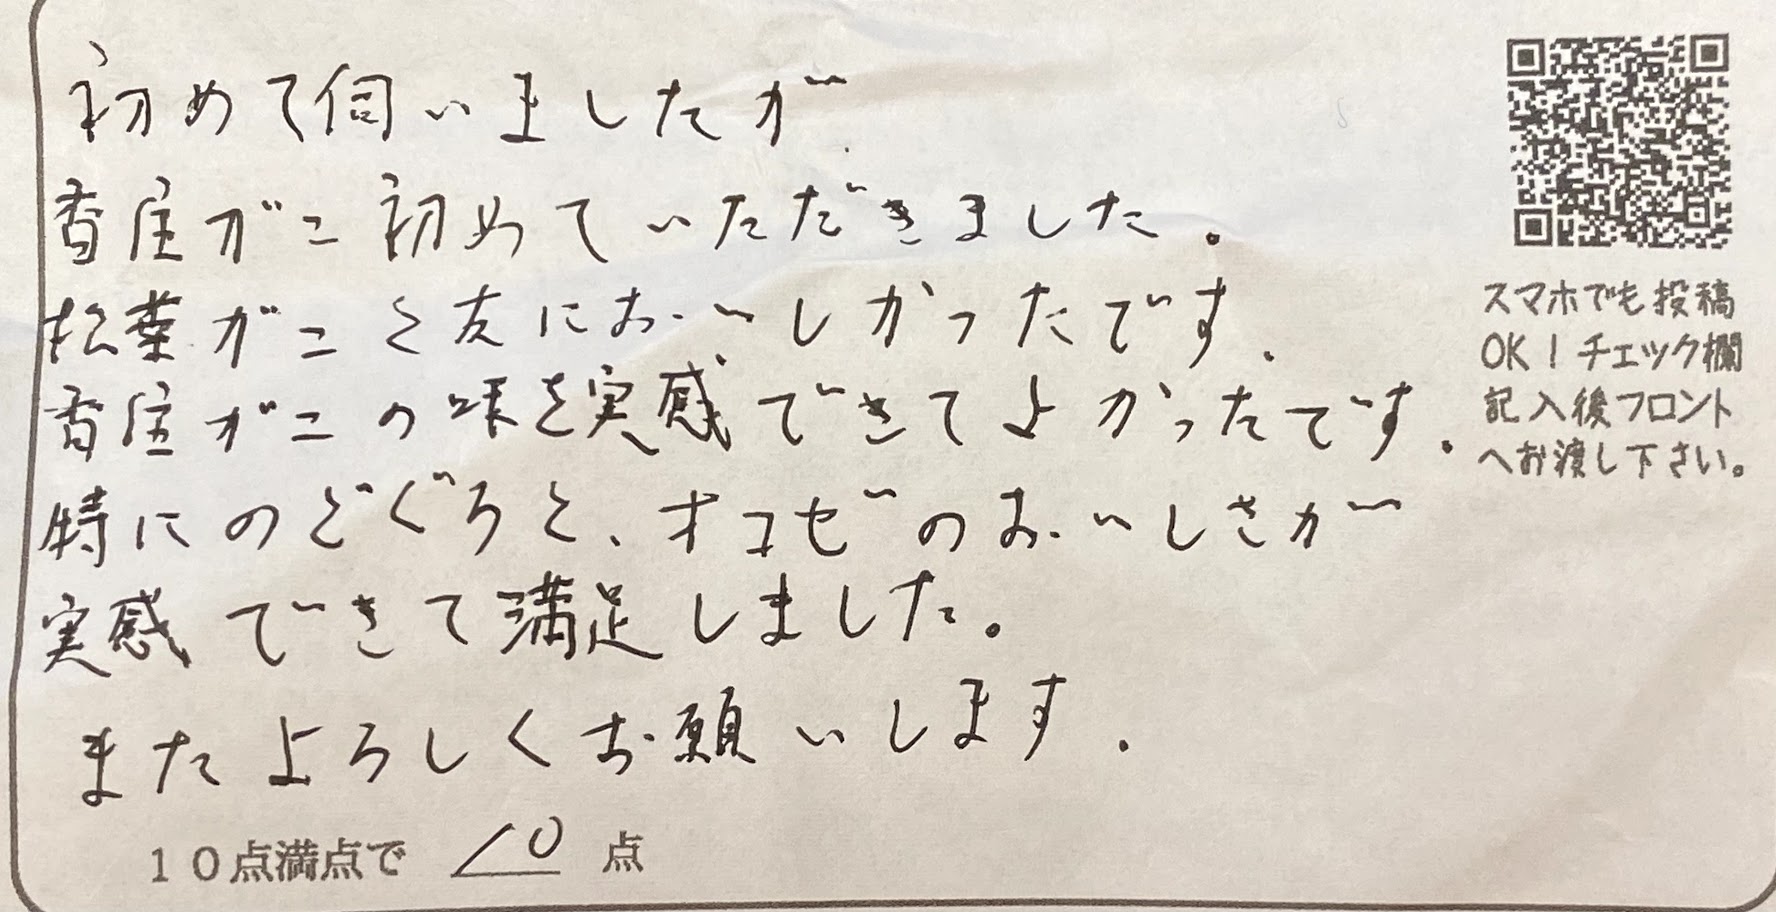 初めて伺いましたが、
香住ガニ初めていただきました。
松葉ガニと友においしかったです。
香住ガニの味を実感できてよかったです。
特にのどぐろと、オコゼのおいしさが
実感できて満足しました。
またよろしくお願いします。
10点満点で 10 点
スマホでも投稿
OK！チェック欄
記入後フロント
へお渡し下さい。